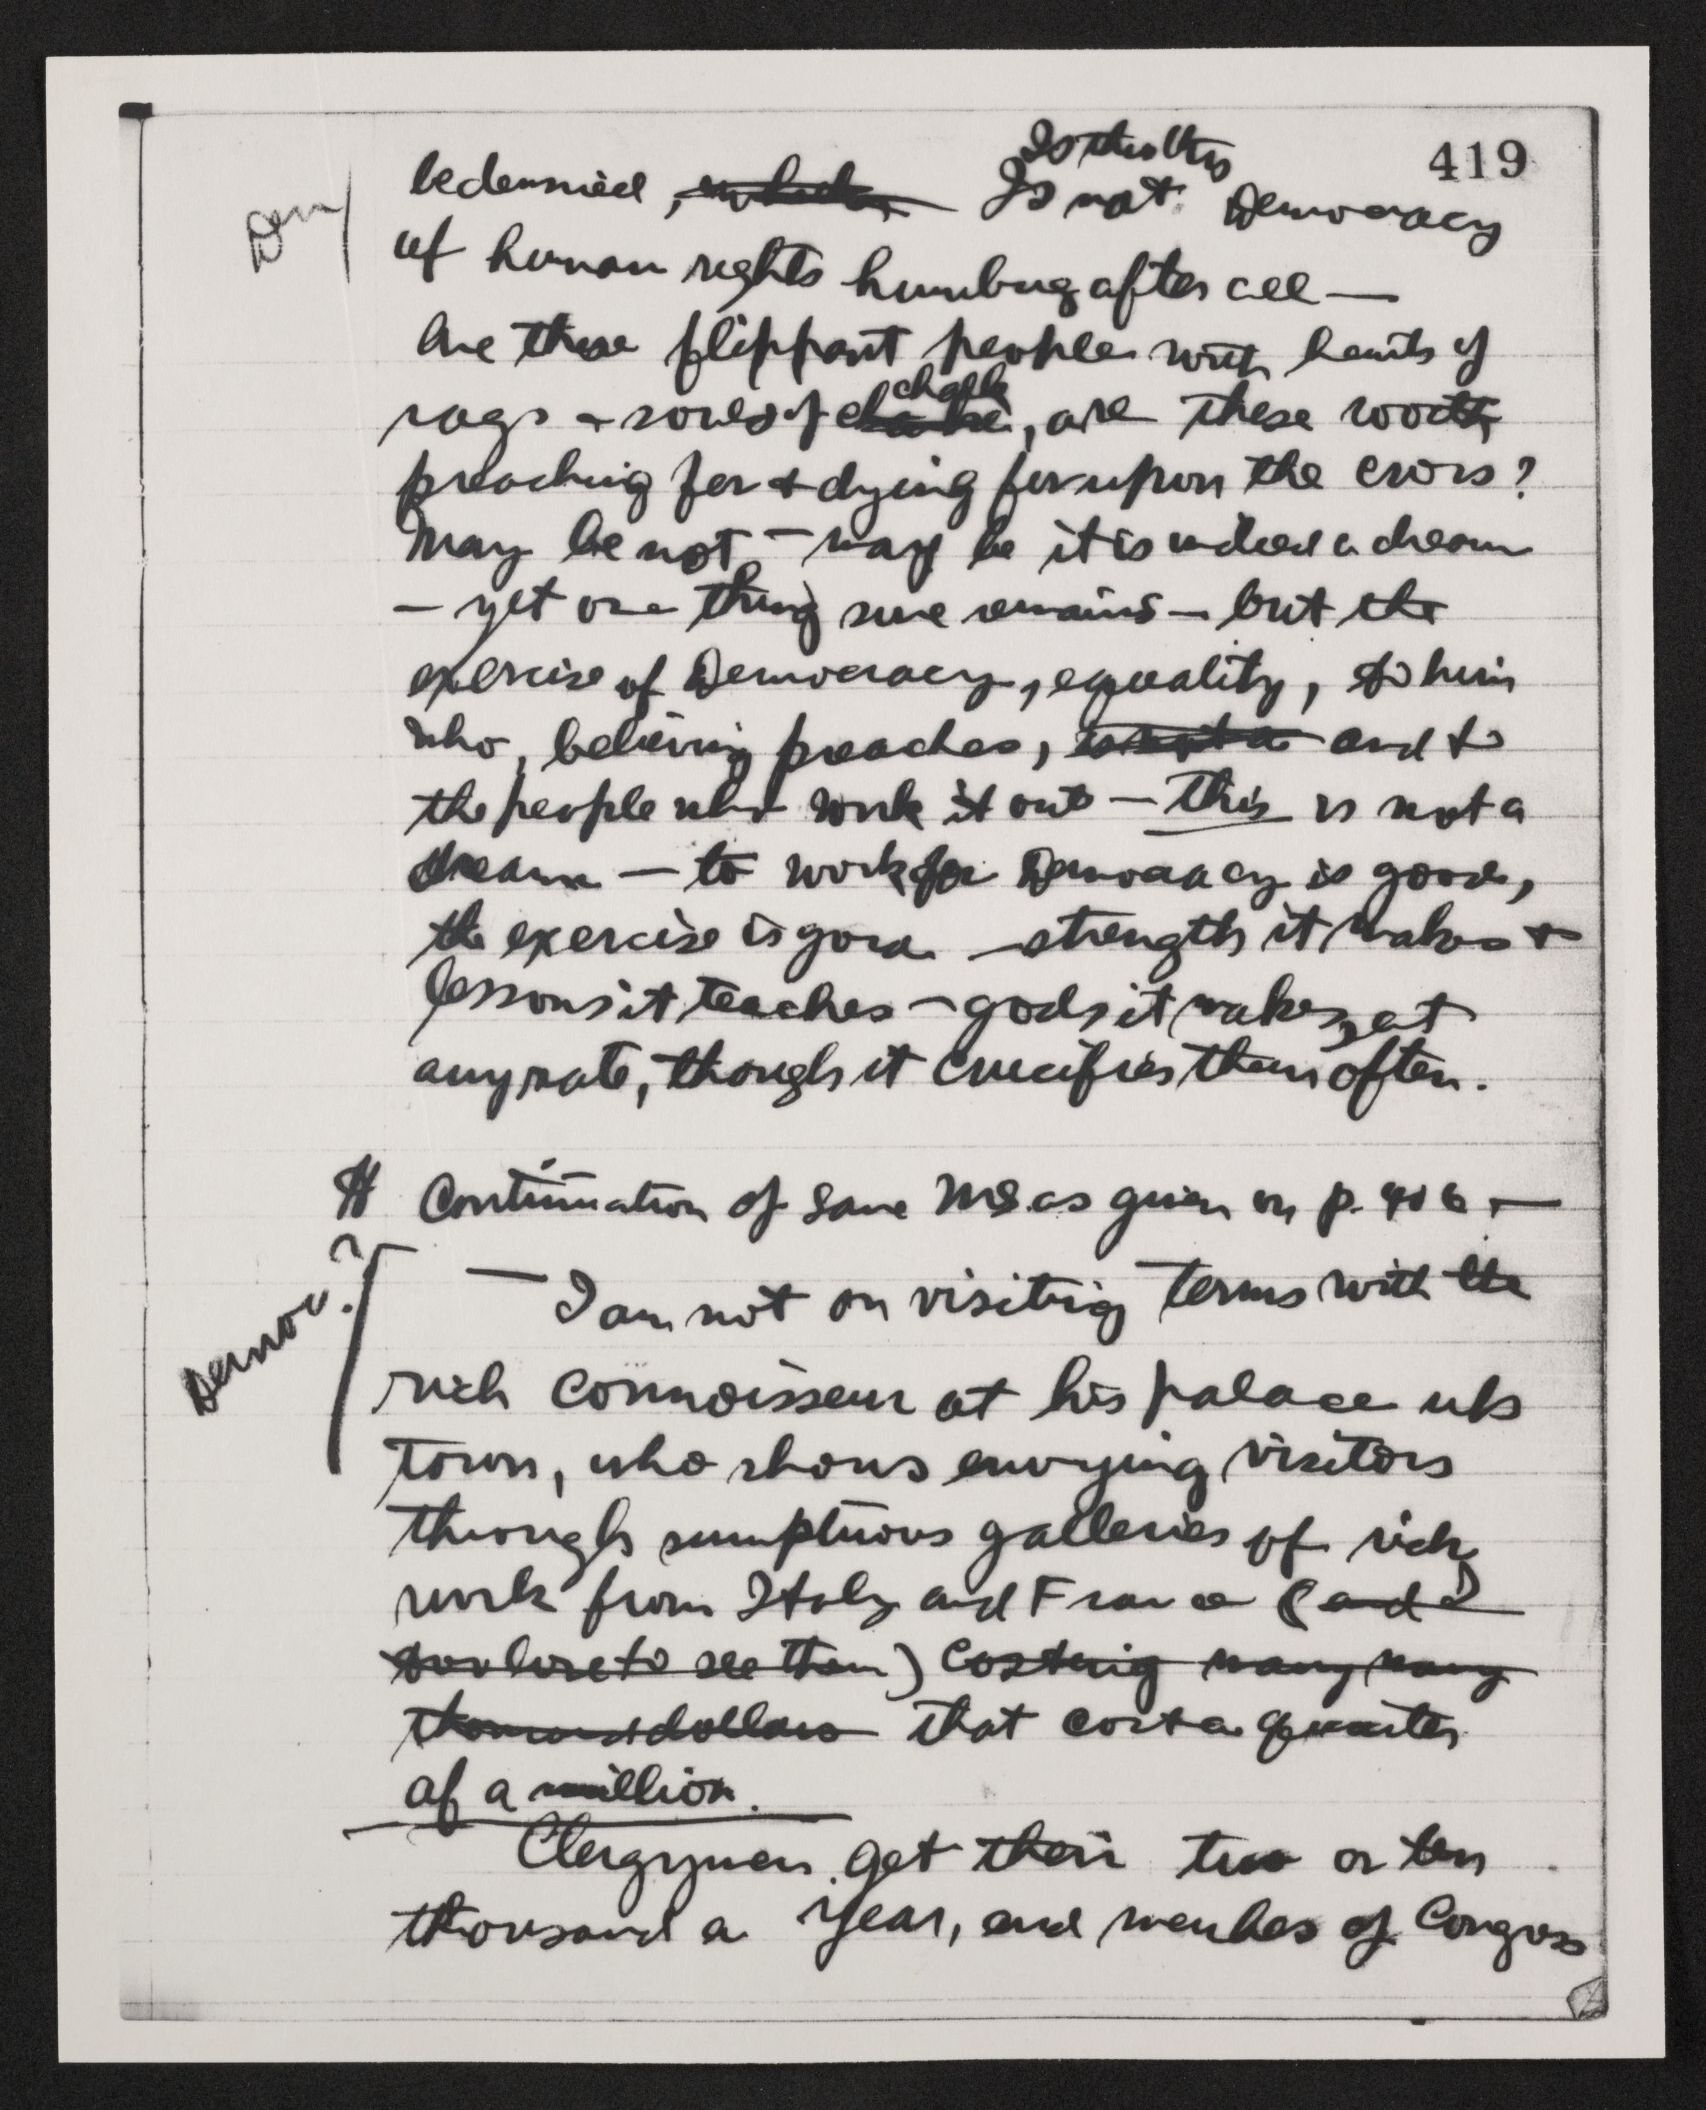 419
Is this then
Dem
be damned, which, Is not Democracy
of human rights humbug after all —
Are these flippant people with hearts of
chalk
rags & souls of chalke, are these worth
preaching for & dying for upon the cross?
May be not — may be it is indeed a dream
— yet one thing sure remains — but the
exercise of Democracy, equality, to him
who, believing, preaches, is not a and to
the people who work it out — this is not a
dream — to work for Democracy is good,
the exercise is good — strength it makes &
lessons it teaches — gods it makes, at
any rate, though it crucifies them often.
# Continuation of same MS. as given on p. 406 —
Democ. ?
— I am not on visiting terms with the
rich connoisseur at his palace up
town, who shows envying visitors
through sumptuous galleries of rich
work from Italy and France (and I
to see them) costing many many
thousand dollars that cost a quarter
of a million.
Clergymen get their two or ten
thousand a year, and member of Congress